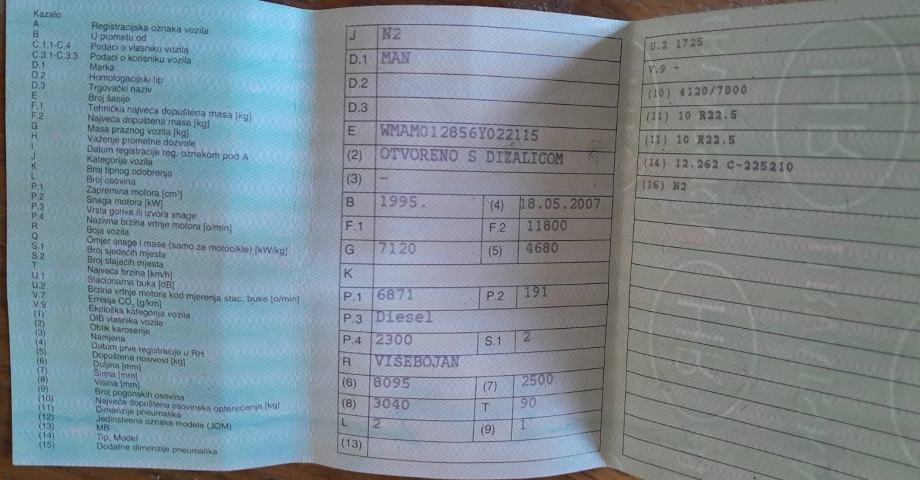 Kazalo:
A Registracijska oznaka vozila
B U prometu od
C.1.1-C.4 Podaci o vlasniku vozila
C.3.1-C.3.3 Podaci o korisniku vozila
D.1 Marka
D.2 Homologacijski tip
D.3 Trgovački naziv
E Broj šasije
F.1 Tehnička najveća dopuštena masa [kg]
F.2 Najveća dopuštena masa [kg]
G Masa praznog vozila [kg]
H Važenje prometne dozvole
I Datum registracije reg. oznakom pod A
J Kategorija vozila
K Broj tipnog odobrenja
L Broj osovina
P.1 Zapremina motora [cm³]
P.2 Snaga motora [kW]
P.3 Vrsta goriva ili izvora snage
P.4 Nazivna brzina vrtnje motora [o/min]
R Boja vozila
Q Omjer snage i mase (samo za motocikle) [kW/kg]
S.1 Broj sjedaćih mjesta
S.2 Broj stajaćih mjesta
T Najveća brzina [km/h]
U.1 Stacionarna buka [dB]
U.2 Brzina vrtnje motora kod mjerenja stac. buke [o/min]
V.7 Emisija CO₂ [g/km]
V.9 Ekološka kategorija vozila
(1) OIB vlasnika vozila
(2) Oblik karoserije
(3) Namjena
(4) Datum prve registracije u RH
(5) Dopuštena nosivost [kg]
(6) Duljina [mm]
(7) Širina [mm]
(8) Visina [mm]
(9) Broj pogonskih osovina
(10) Najveća dopuštena osovinska opterećenja [kg]
(11) Dimenzije pneumatika
(12) Jedinstvena oznaka modela (JOM)
(13) MB
(14) Tip, Model
(15) Dodatne dimenzije pneumatika
J N2
D.1 MAN
D.2
D.3
E WMAM012856Y022115
(2) OTVORENO S DIZALICOM
(3) -
B 1995. (4) 18.05.2007
F.1 F.2 11800
G 7120 (5) 4680
K
P.1 6871 P.2 191
P.3 Diesel
P.4 2300 S.1 2
R VIŠEBOJAN
(6) 8095 (7) 2500
(8) 3040 T 90
L 2 (9) 1
(13)
U.2 1725
V.9 -
(10) 4120/7800
(11) 10 R22.5
(11) 10 R22.5
(14) 12.262 C-225210
(16) N2